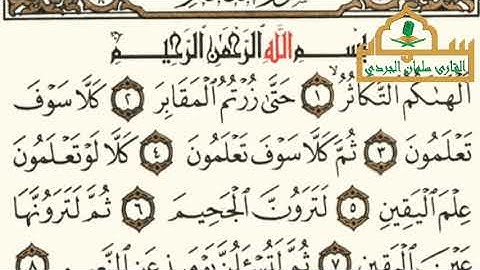 بِسْمِ ٱللَّهِ ٱلرَّحْمَٰنِ ٱلرَّحِيمِ
القارئ سلمان العردي
أَلْهَىٰكُمُ ٱلتَّكَاثُرُ ١ حَتَّىٰ زُرْتُمُ ٱلْمَقَابِرَ ٢ كَلَّا سَوْفَ
تَعْلَمُونَ ٣ ثُمَّ كَلَّا سَوْفَ تَعْلَمُونَ ٤ كَلَّا لَوْ تَعْلَمُونَ
عِلْمَ ٱلْيَقِينِ ٥ لَتَرَوُنَّ ٱلْجَحِيمَ ٦ ثُمَّ لَتَرَوُنَّهَا
عَيْنَ ٱلْيَقِينِ ٧ ثُمَّ لَتُسْـَٔلُنَّ يَوْمَئِذٍ عَنِ ٱلنَّعِيمِ ٨